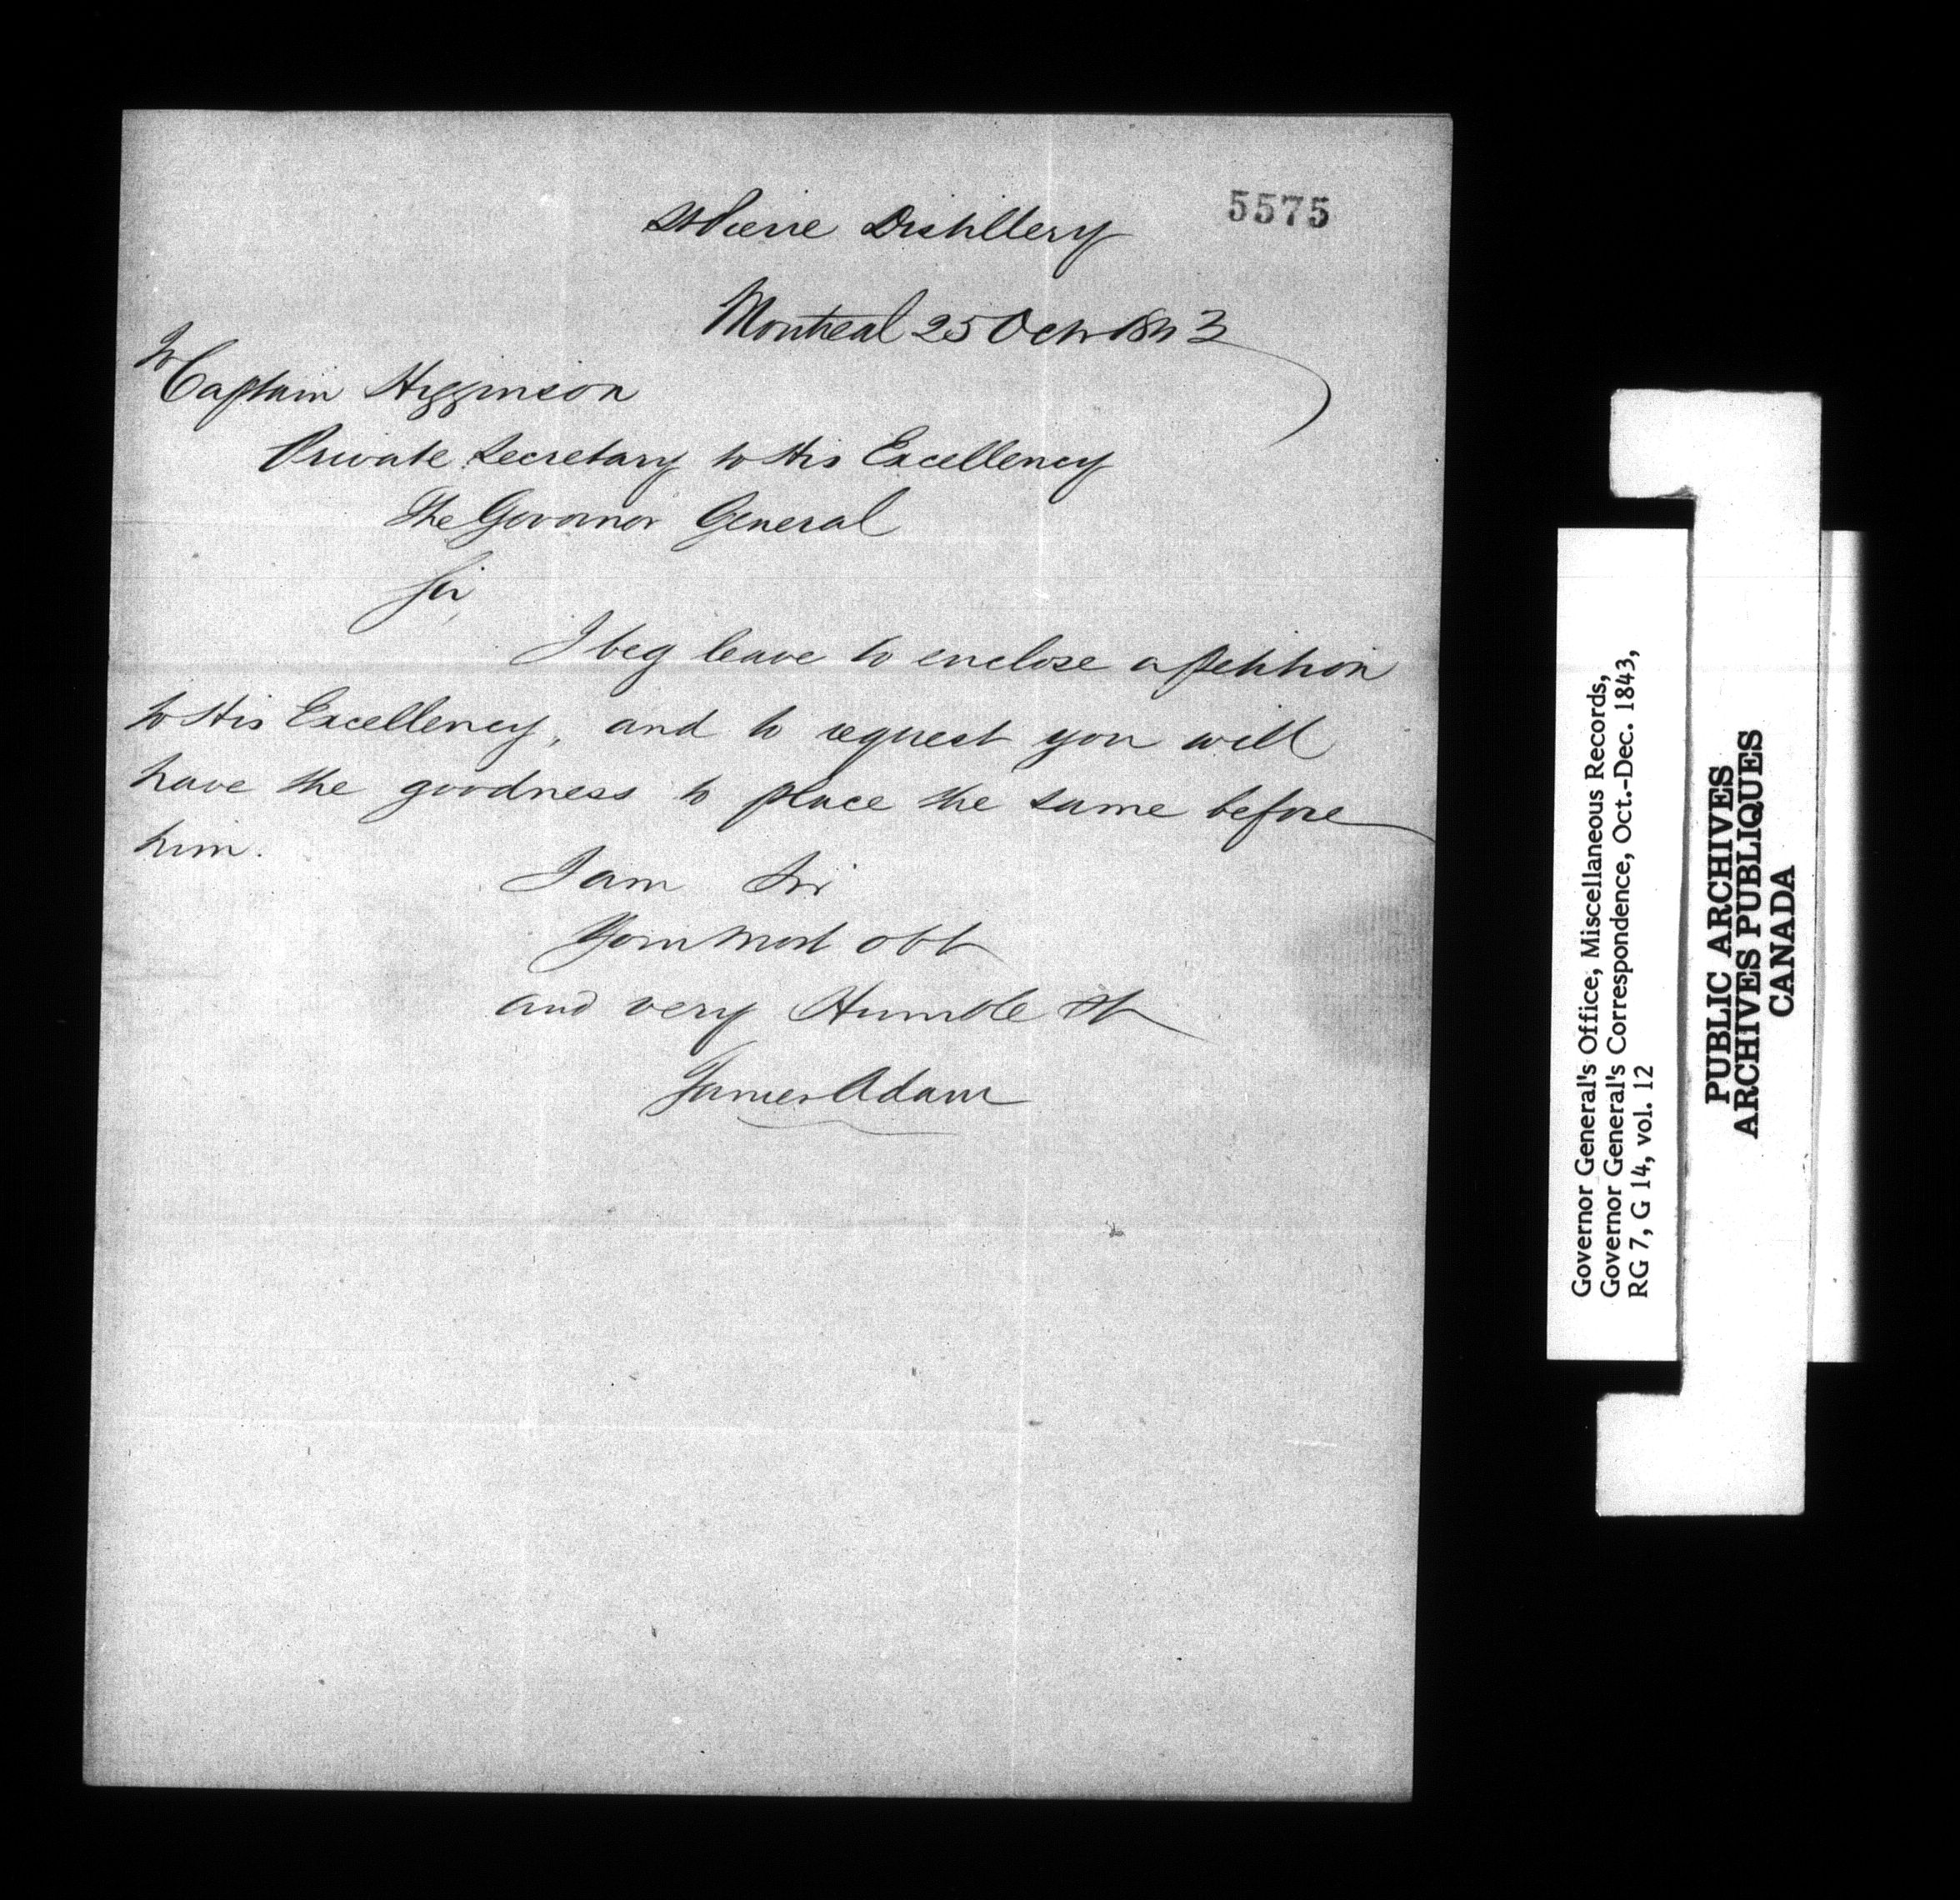 5575
St Pierre Distillery
Montreal 25 Oct 1843
To
Captain Higginson
Private Secretary to His Excellency
The Governor General
Sir,
I beg leave to enclose a petition
to His Excellency, and to request you will
have the goodness to place the same before
him.
I am Sir
Your most obt
and very Humble St
James Adam
Governor General's Office, Miscellaneous Records,
Governor General's Correspondence, Oct.-Dec. 1843,
RG 7, G 14, vol. 12
PUBLIC ARCHIVES
ARCHIVES PUBLIQUES
CANADA